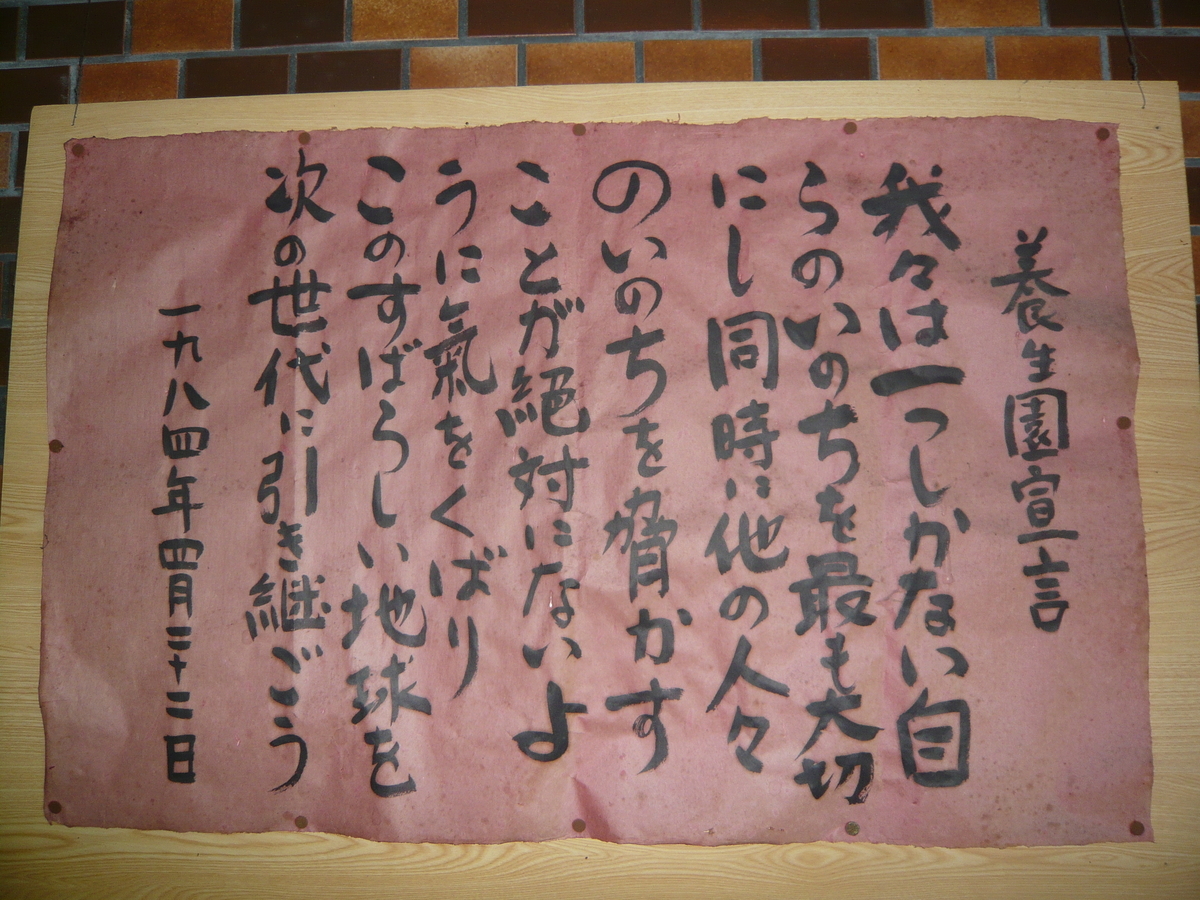 養生園宣言
我々は一つしかない自
らのいのちを最も大切
にし同時に他の人々
のいのちを脅かす
ことが絶対にないよ
うに氣をくばり
このすばらしい地球を
次の世代に引き継ごう
一九八四年四月二十二日